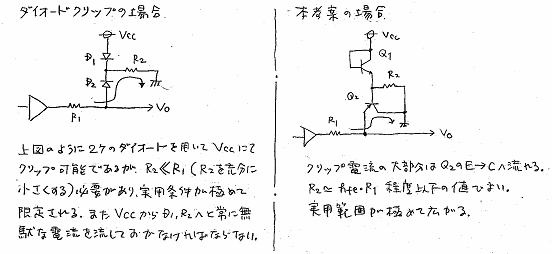 ダイオードクリップの場合
Vcc
D1
R2
D2
R1
Vo
上図のように2ケのダイオードを用いてVccにて
クリップ可能であるが、R2≪R1（R2を充分に
小さくする）必要があり、実用条件が極めて
限定される。またVccからD1,R2へと常に無
駄な電流を流しておかなければならない。
本考案の場合
Vcc
Q1
R2
Q2
R1
Vo
クリップ電流の大部分はQ2のE→Cへ流れる。
R2≃hfe・R1 程度以下の値でよい。
実用範囲が極めて広がる。